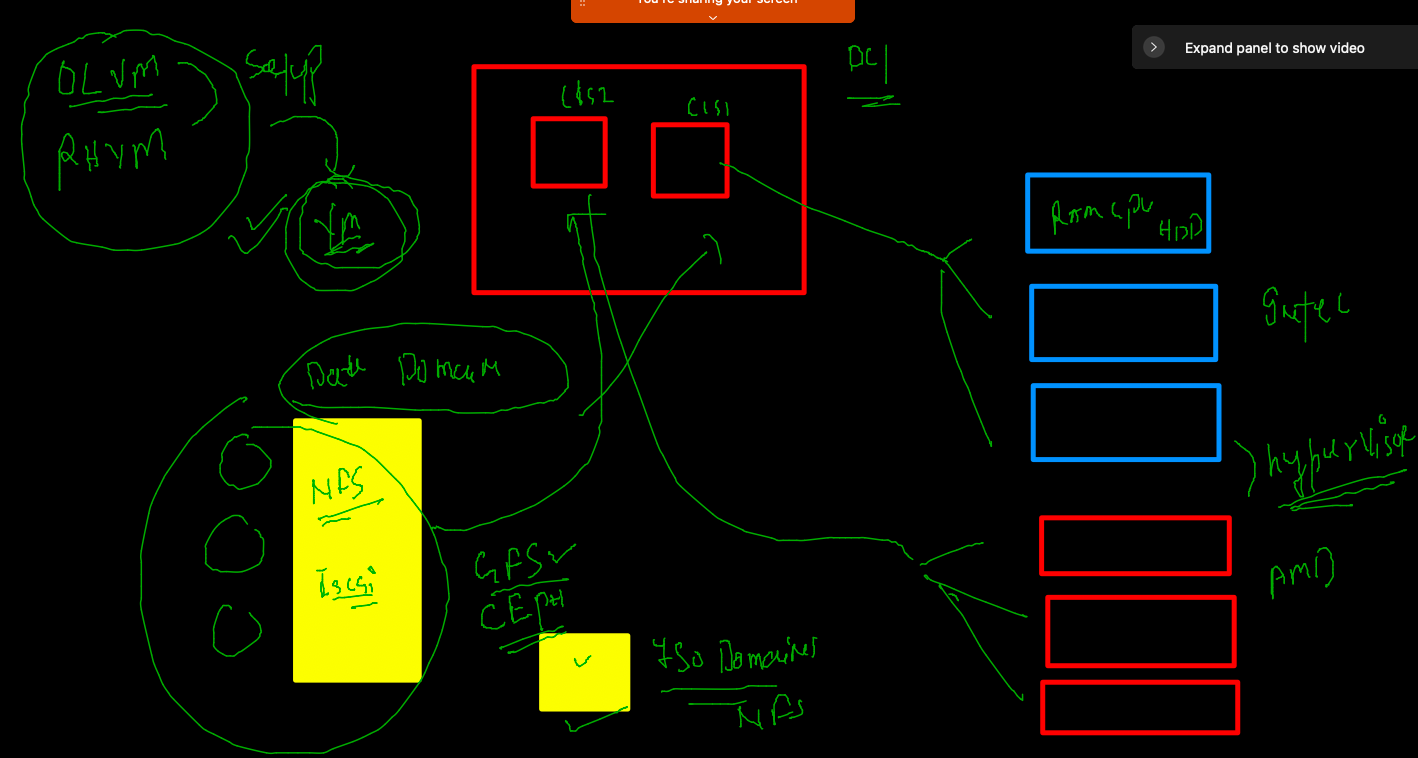 You're sharing your screen
Expand panel to show video
OLVM
RHVM
Setup
VM
DC1
Cls2
Cls1
Ram cpu
HDD
Intel
hypervisor
AMD
Data Domain
NFS
Iscsi
GFS
CEPH
ISO Domaines
NFS